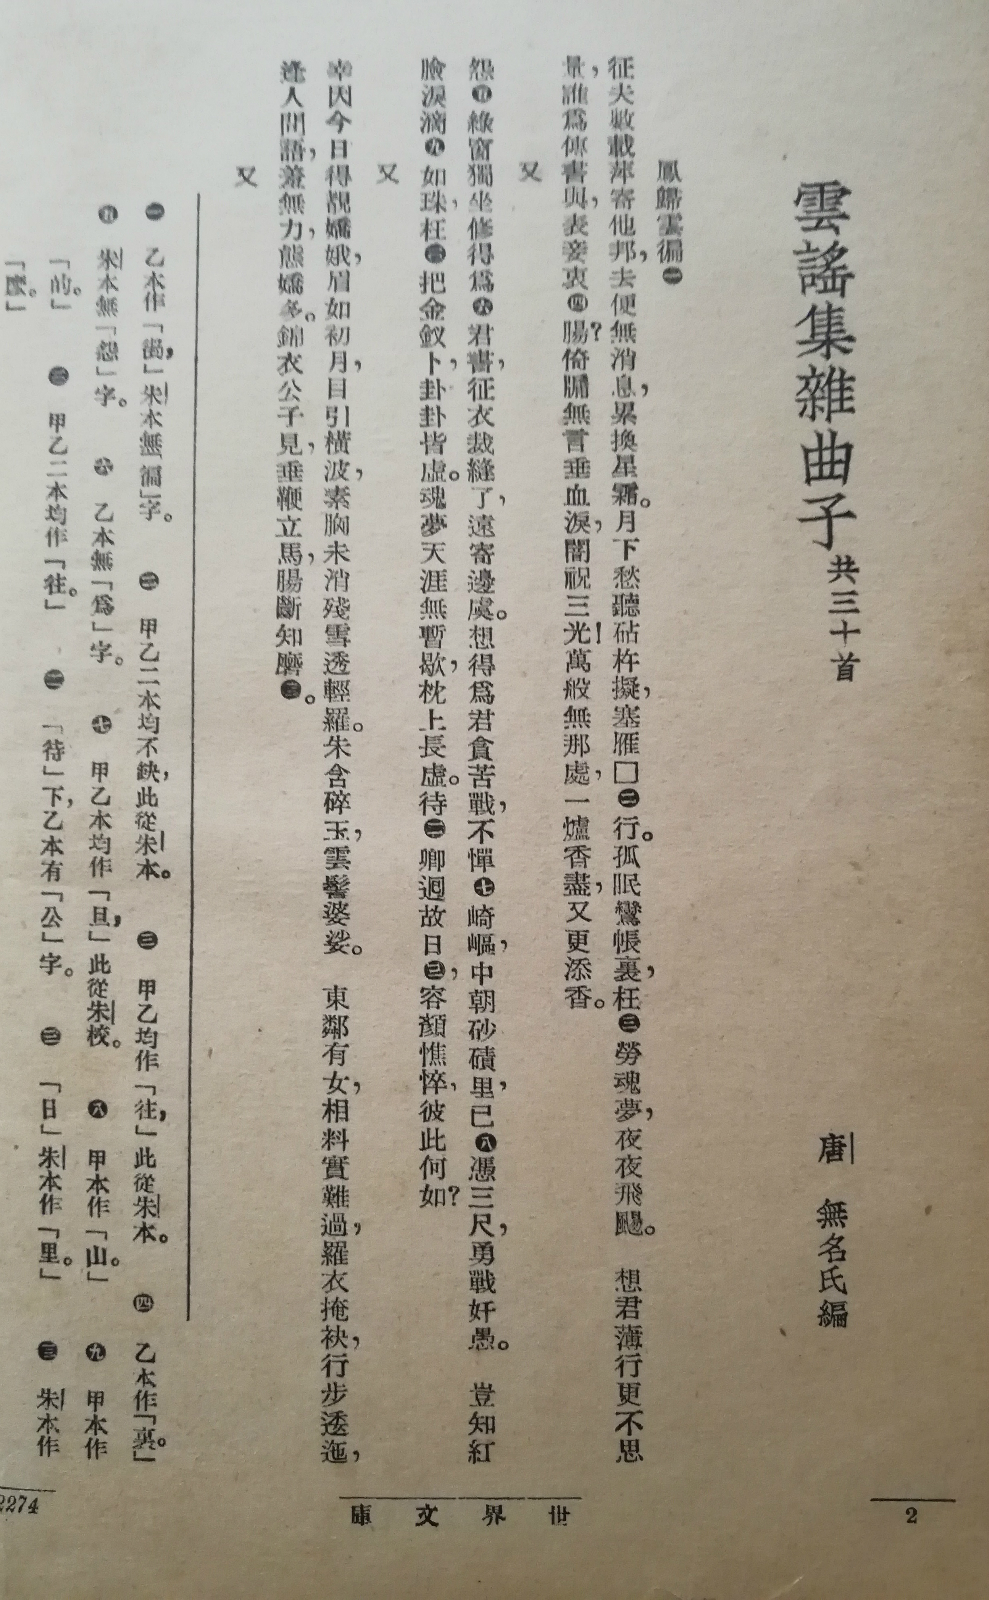 雲謠集雜曲子共三十首
唐 無名氏編
鳳歸雲徧㊀
征夫數載，萍寄他邦，去便無消息，累換星霜。月下愁聽砧杵，擬塞雁□㊁行。孤眠鸞帳裏，枉㊂勞魂夢，夜夜飛颺。 想君薄行更不思
量，誰爲傳書與，表妾衷㊃腸？倚牖無言垂血淚，闇祝三光！萬般無那處，一爐香盡，又更添香。
又
怨㊄綠窗獨坐，修得爲㊅君書，征衣裁縫了，遠寄邊虞。想得爲君貪苦戰，不憚㊆崎嶇，中朝砂磧里，已㊇憑三尺，勇戰奸愚。 豈知紅
臉，淚滴㊈如珠，枉㊁把金釵卜，卦卦皆虛。魂夢天涯無暫歇，枕上長虛。待㊁卿迴故日㊂，容顏憔悴，彼此何如？
又
幸因今日，得覩嬌娥，眉如初月，目引橫波，素胸未消殘雪，透輕羅。朱含碎玉，雲髻婆娑。 東鄰有女，相料實難過，羅衣掩袂，行步逶迤，
逢人問語，羞無力，態嬌多。錦衣公子見，垂鞭立馬，腸斷知麼㊂。
又
㊀ 乙本作「澷」，朱本無「徧」字。 ㊁ 甲乙二本均不缺，此從朱本。 ㊂ 甲乙均作「往」，此從朱本。 ㊃ 乙本作「裏」。
㊄ 朱本無「怨」字。 ㊅ 乙本無「爲」字。 ㊆ 甲乙本均作「旦」，此從朱校。 ㊇ 甲本作「山」。 ㊈ 甲本作
「的」。 ㊁ 甲乙二本均作「往」。 ㊁ 「待」下，乙本有「公」字。 ㊂ 「日」朱本作「里」。 ㊂ 朱本作
「麼」。
世界文庫
2
2274